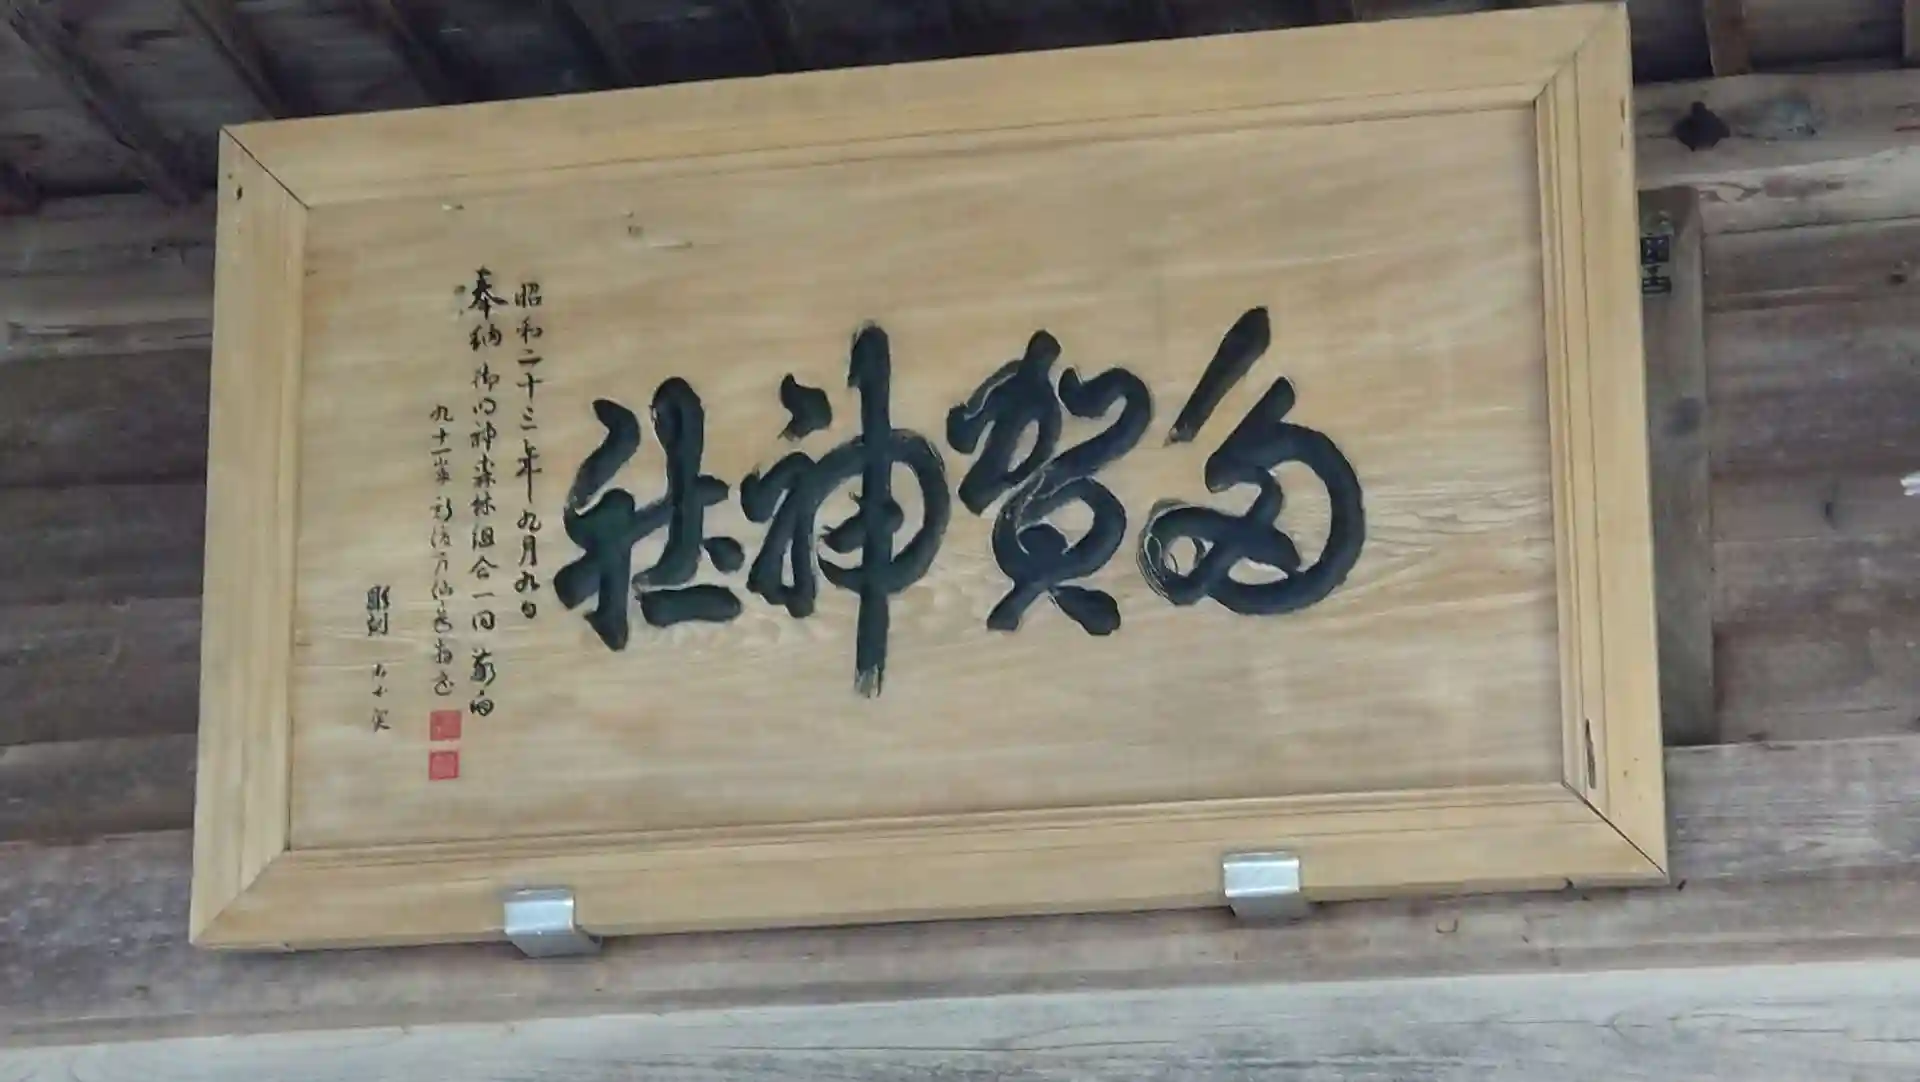 多賀神社
昭和二十三年九月九日
奉納 御明神森林組合一同 敬白
九十一
彫刻